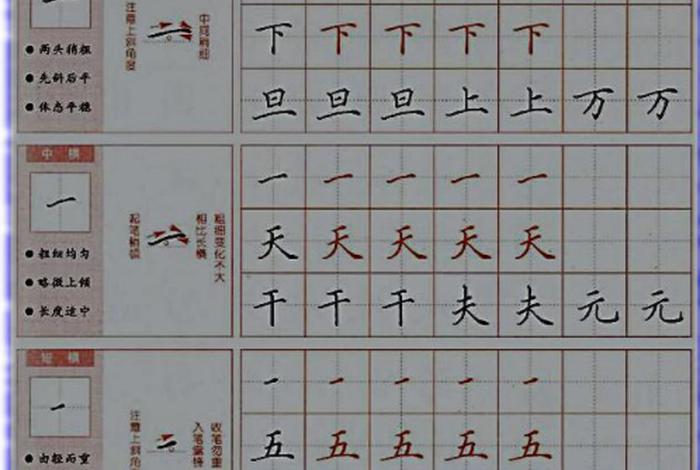 一
● 两头稍粗
● 先斜后平
● 体态平稳
注意上斜角度
中间稍细
下 下 下 下 下
旦 旦 旦 上 上 万 万
中横
一
● 粗细均匀
● 略微上倾
● 长度适宁
起笔稍顿
相比长横
粗细变化不大
一 一 一 一 一
天 天 天 天 天
干 干 干 夫 夫 元 元
短横
一
● 由轻而重
注意上斜角
入笔露锋
收笔勿重
一 一 一 一 一
五 五 五 五 五